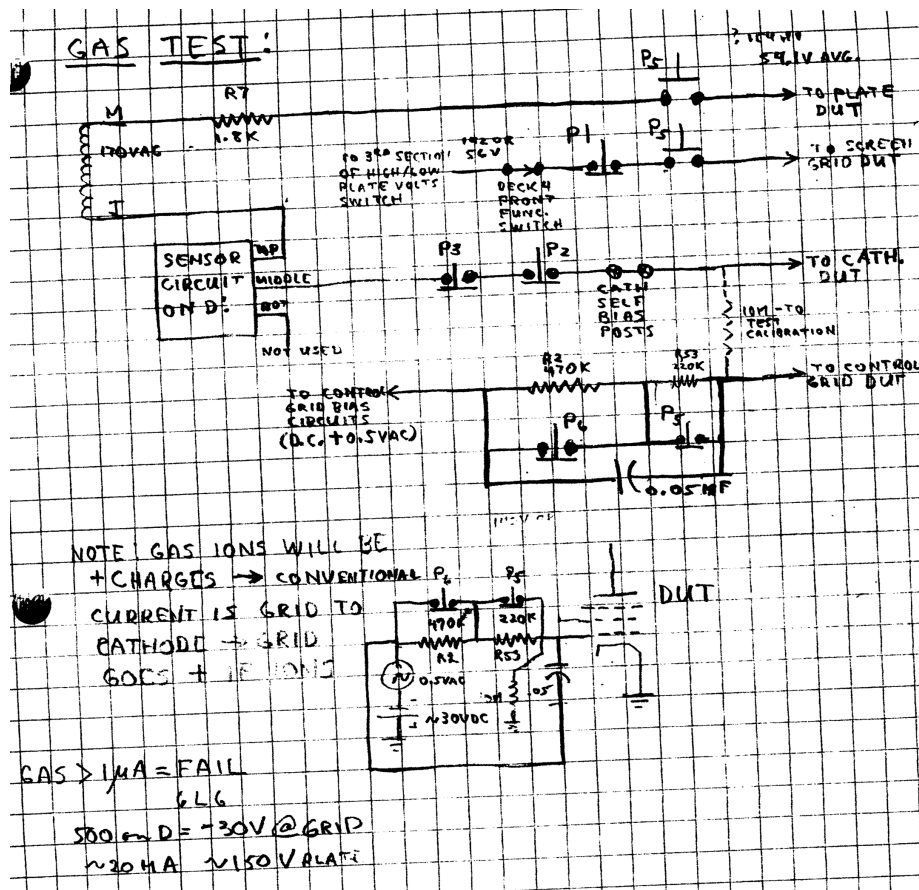 GAS TEST:
59.1V AVG.
P5
TO PLATE
DUT
M
R7
1.8K
170VAC
I
TO 3RD SECTION
OF HIGH/LOW
PLATE VOLTS
SWITCH
56V
DECK 4
FRONT
FUNC.
SWITCH
P1
P5
TO SCREEN
GRID DUT
SENSOR
CIRCUIT
ON D!
TOP
MIDDLE
BOT
NOT USED
P3
P2
CATH
SELF
BIAS
POSTS
TO CATH.
DUT
10M-TO
TEST
CALIBRATION
TO CONTROL
GRID BIAS
CIRCUITS
(D.C. + 0.5VAC)
R2
470K
R53
220K
TO CONTROL
GRID DUT
P6
P5
0.05MF
NOTE: GAS IONS WILL BE
+ CHARGES → CONVENTIONAL
CURRENT IS GRID TO
CATHODE → GRID
GOES + IF IONS
P6
P5
470K
220K
R2
R53
0.5VAC
~30VDC
.05
DUT
GAS > 1µA = FAIL
6L6
500 on D = -30V @ GRID
~20MA ~150V PLATE